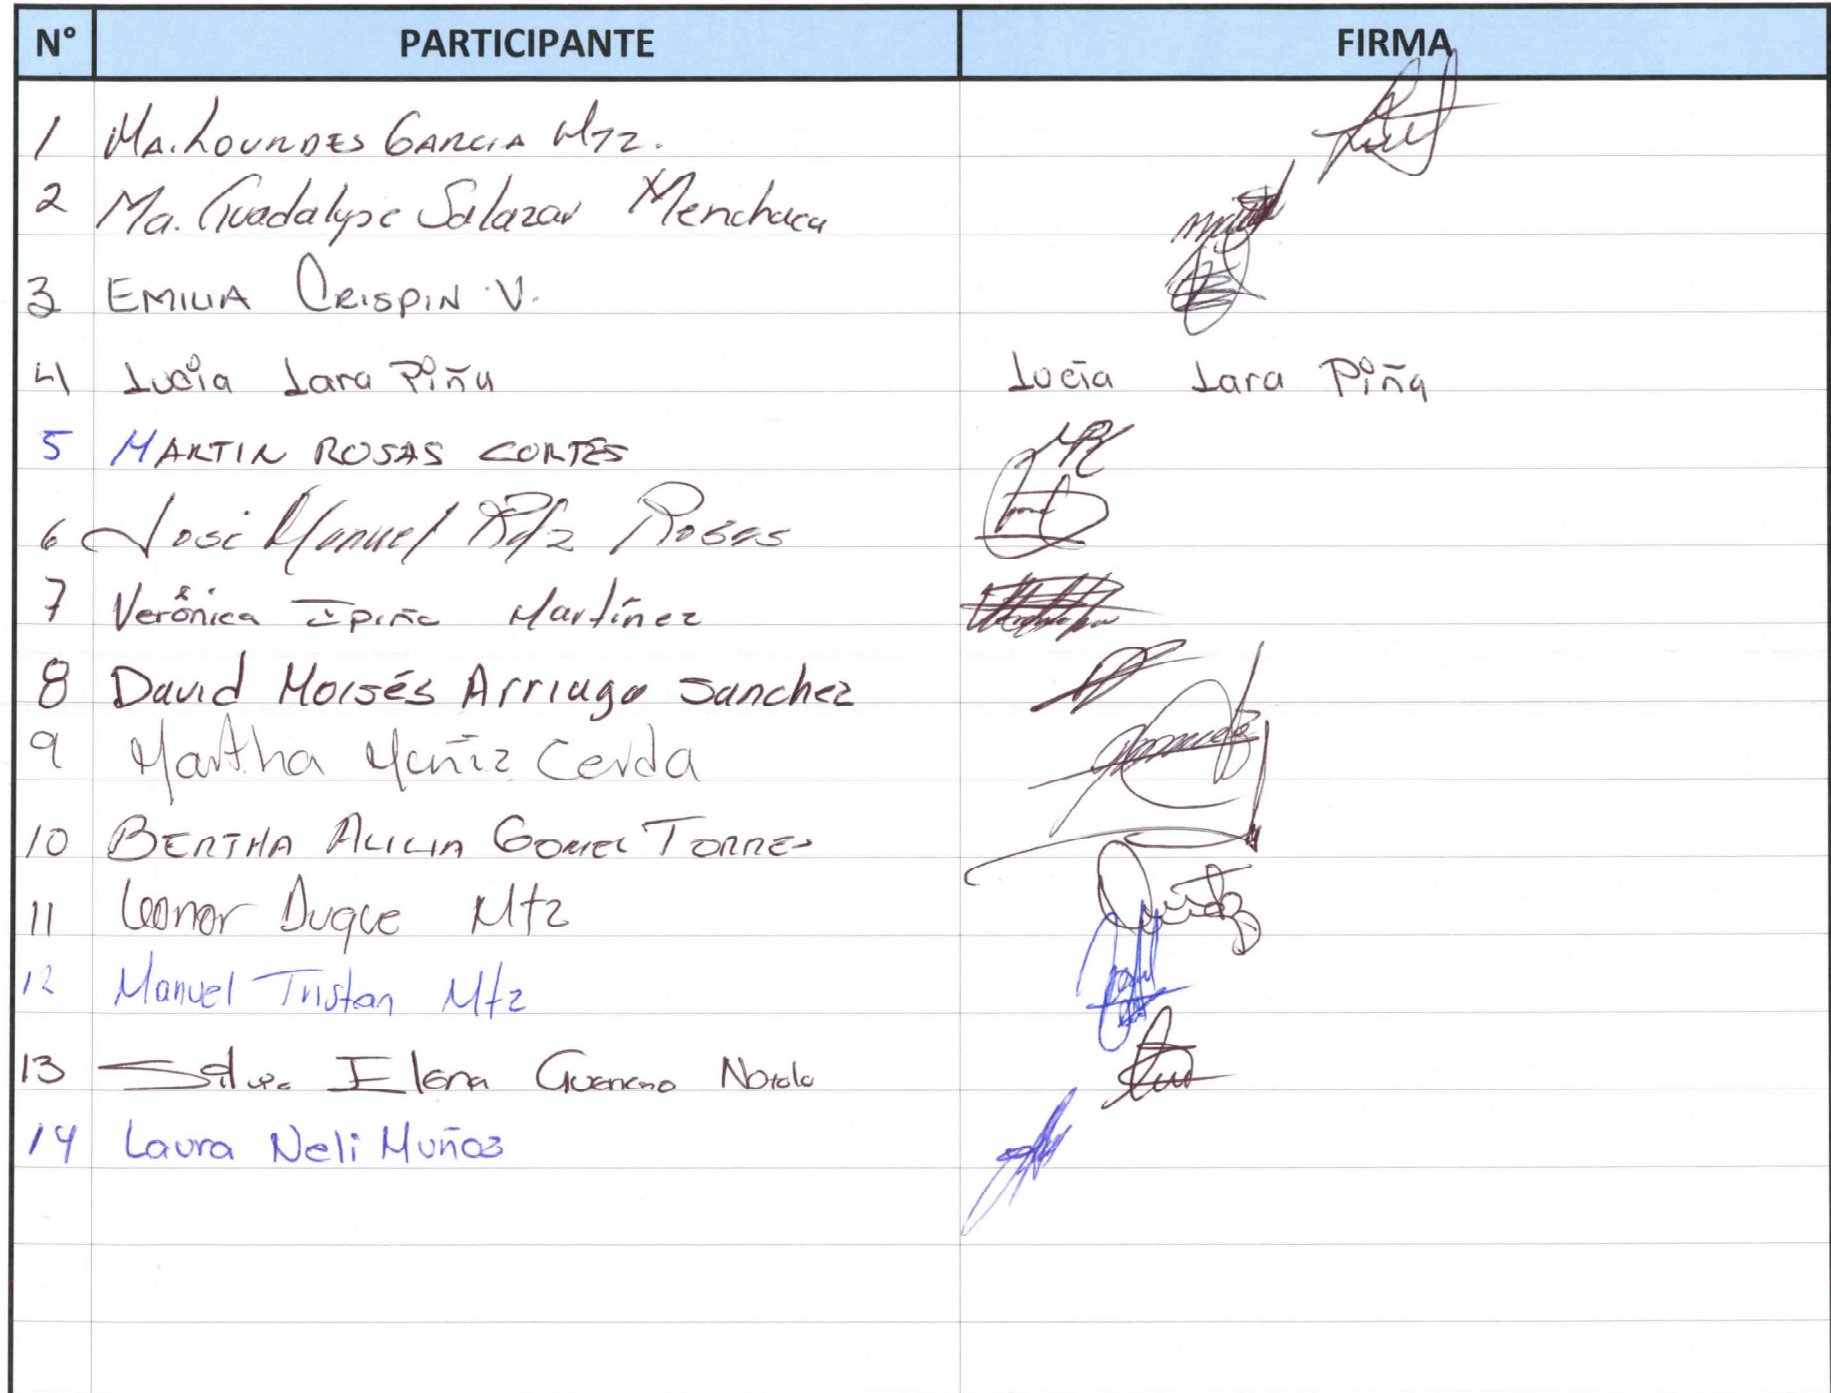 N° PARTICIPANTE FIRMA
1 Ma. Lourdes Garcia Mtz.
2 Ma. Guadalupe Salazar Menchaca
3 EMILIA CRISPIN V.
4 Lucía Lara Piña Lucía Lara Piña
5 MARTIN ROSAS CORTES
6 José Manuel Rdz Rosas
7 Verónica Ipiña Martínez
8 David Moisés Arriaga Sanchez
9 Martha Muñiz Cerda
10 BERTHA ALICIA GOMEZ TORRES
11 Leonor Duque Mtz
12 Manuel Tristan Mtz
13 Silvia Elena Guerrero
14 Laura Neli Muñoz